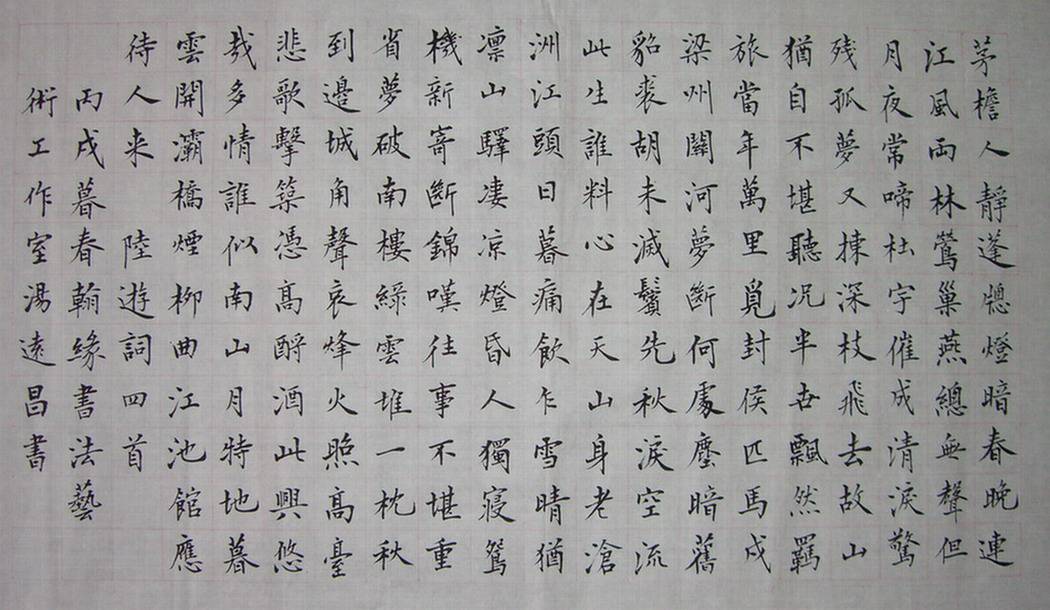 茅檐人靜蓬牕燈暗春晚連
江風雨林鶯巢燕總無聲但
月夜常啼杜宇催成清淚驚
残孤夢又揀深枝飛去故山
猶自不堪聽况半世飄然羈
旅當年萬里覓封侯匹馬戍
梁州關河夢斷何處塵暗舊
貂裘胡未滅鬢先秋淚空流
此生誰料心在天山身老滄
洲江頭日暮痛飲乍雪晴猶
凛山驛凄凉燈昏人獨寢鴛
機新寄斷錦嘆往事不堪重
省夢破南樓綠雲堆一枕秋
到邊城角聲哀烽火照高臺
悲歌擊築憑高酹酒此興悠
哉多情誰似南山月特地暮
雲開灞橋煙柳曲江池館應
待人来 陸遊詞四首
丙戌暮春翰緣書法藝
術工作室湯遠昌書